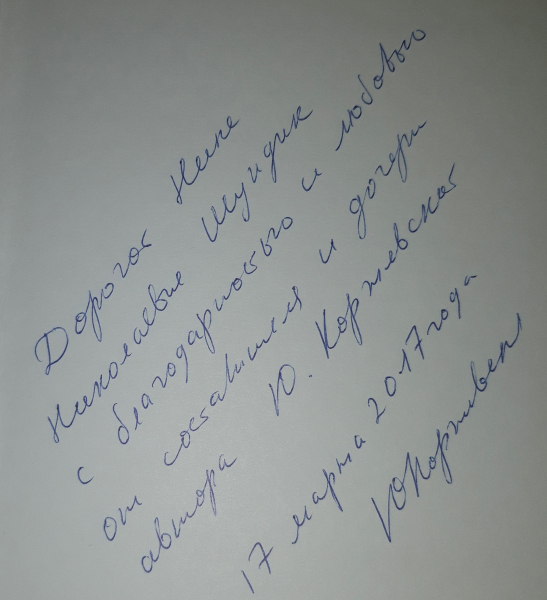 Дорогой Нине
Николаевне Шундик
с благодарностью и любовью
от составителя и дочери
автора Ю. Коржевской
17 марта 2017 года